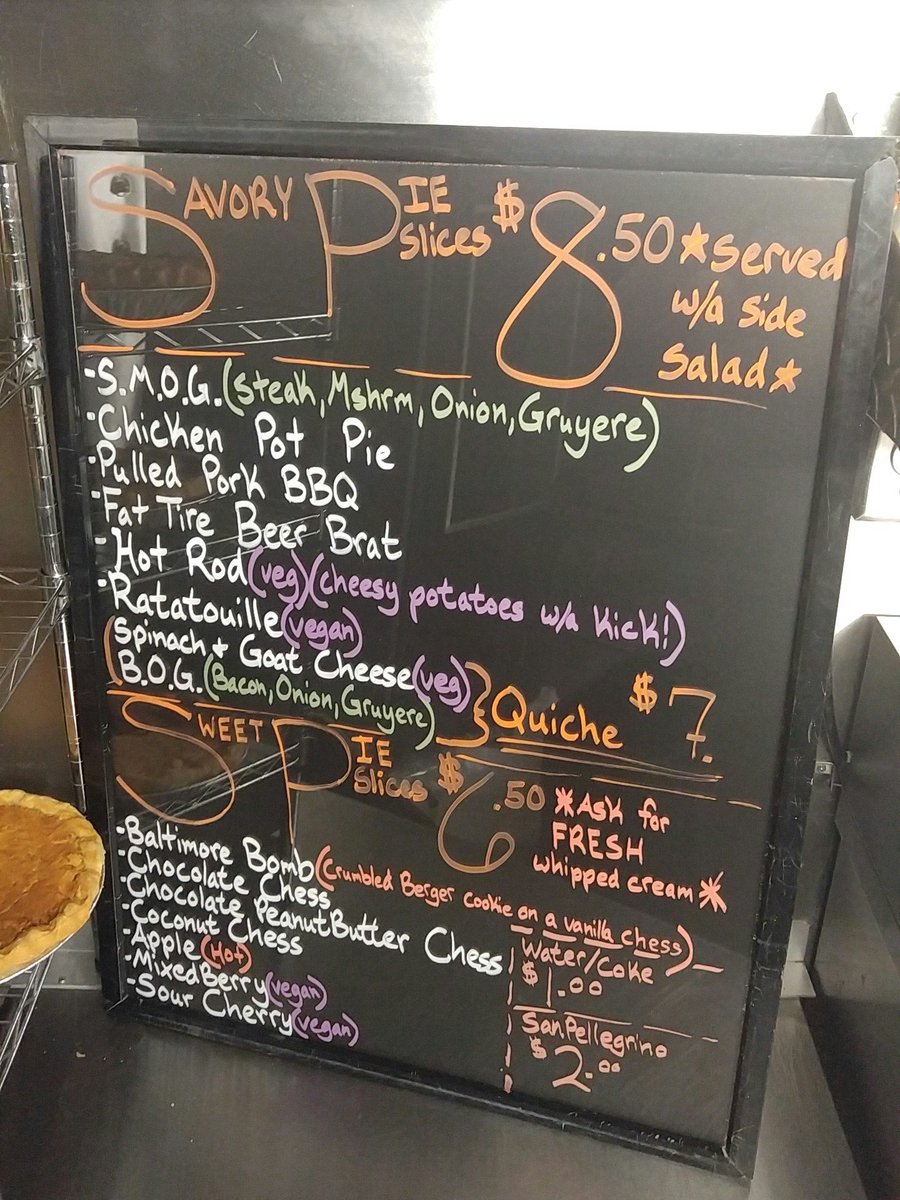 SAVORY PIE Slices $8.50 *served w/a side salad*
-S.M.O.G. (steak, Mshrm, Onion, Gruyere)
-Chicken Pot Pie
-Pulled Pork BBQ
-Fat Tire Beer Brat
-Hot Rod (veg) (cheesy potatoes w/a kick!)
-Ratatouille (vegan)
Spinach + Goat Cheese (veg)
B.O.G. (Bacon, Onion, Gruyere)
Quiche $7.
SWEET PIE Slices $6.50 *Ask for FRESH whipped cream*
-Baltimore Bomb (Crumbled Berger cookie on a vanilla chess)
-Chocolate Chess
-Chocolate PeanutButter Chess
-Coconut Chess
-Apple (Hot)
-MixedBerry (vegan)
-Sour Cherry (vegan)
Water/Coke
$1.00
San Pellegrino
$2.00